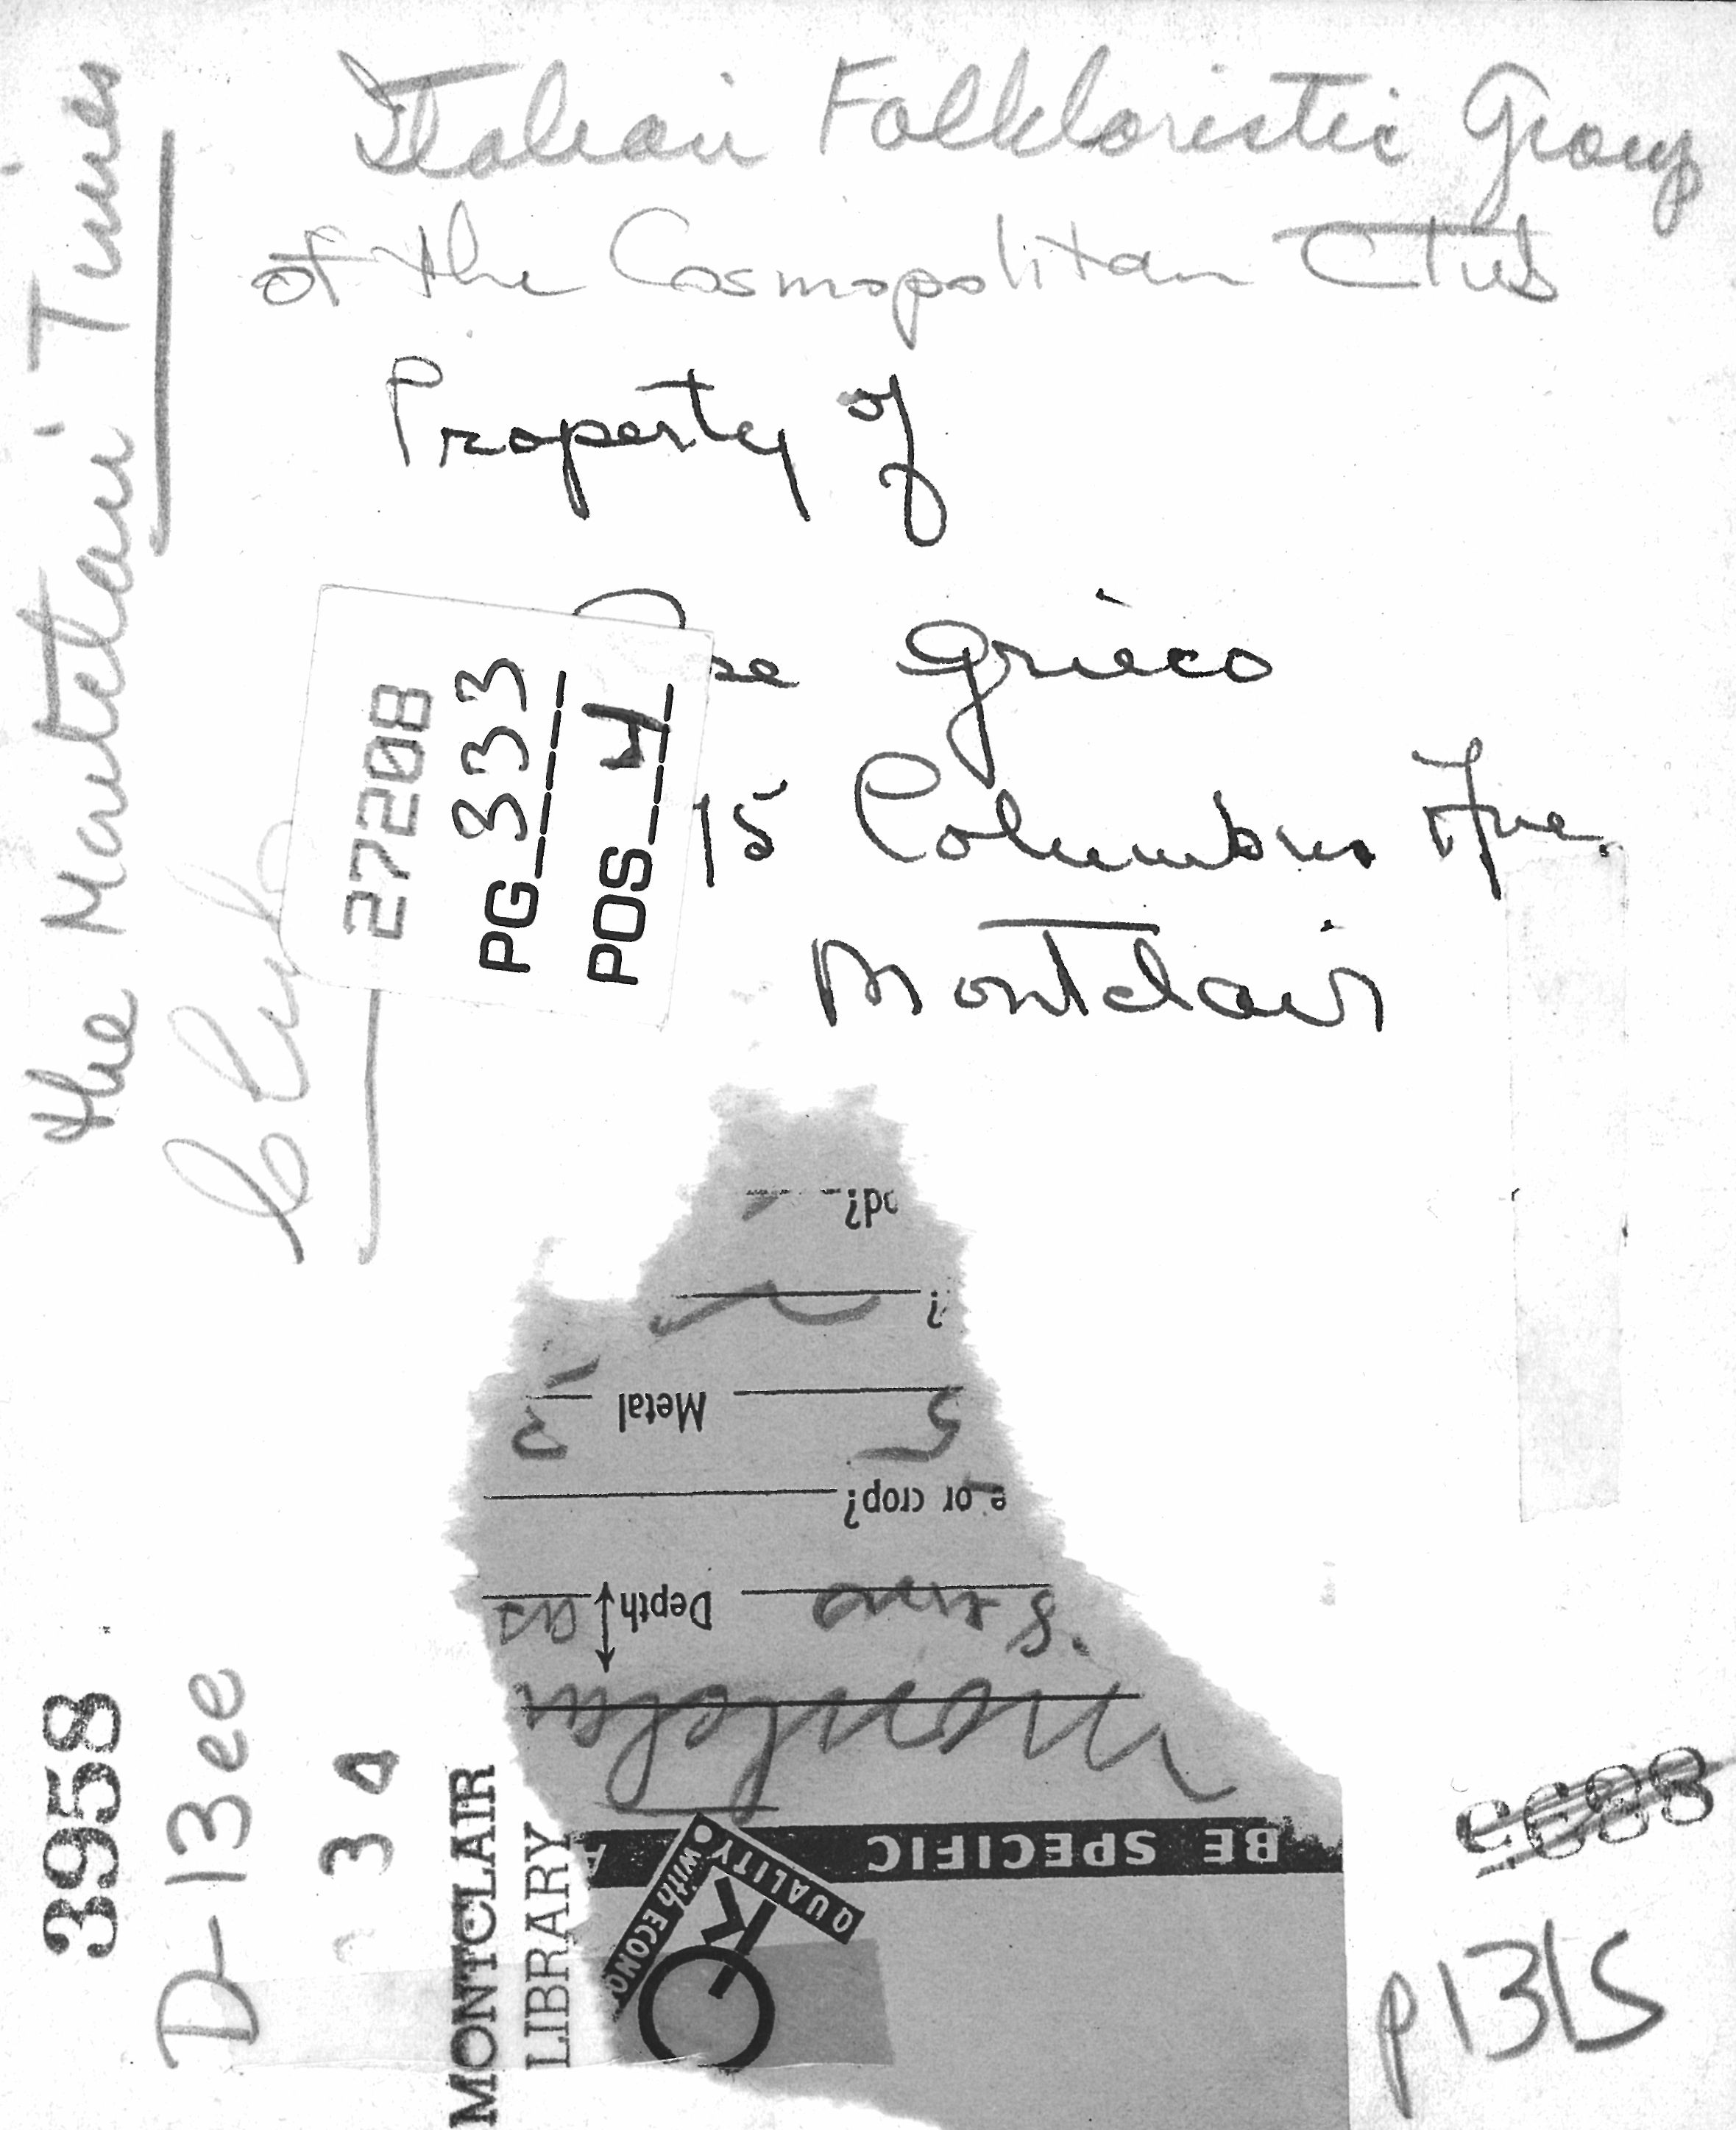 Italian Folkloristic Group
of the Cosmopolitan Club
Property of
se Grieco
15 Columbus Ave.
Montclair
the Montclair Times
Club
27208
PG 333
POS 4
od?
?
Metal
5
e or crop?
Depth
BE SPECIFIC A
QUALITY with ECONO
3958
D-13ee
34
MONTCLAIR
LIBRARY
p1315